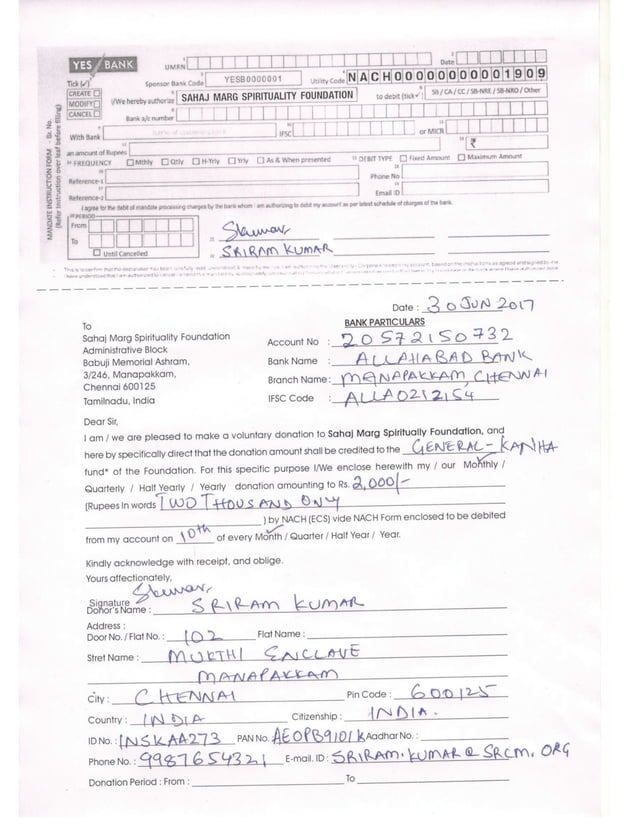 YES BANK
UMRN
Date
Tick (✓)
Sponsor Bank Code YESB0000001 Utility Code NACH00000000001909
CREATE
MODIFY
CANCEL
I/We hereby authorize SAHAJ MARG SPIRITUALITY FOUNDATION to debit (tick✓) SB / CA / CC / SB-NRE / SB-NRO / Other
Bank a/c number
With Bank IFSC or MICR
an amount of Rupees ₹
FREQUENCY Mthly Qtrly H-Yrly Yrly As & When presented DEBIT TYPE Fixed Amount Maximum Amount
Reference-1 Phone No
Reference-2 Email ID
I agree for the debit of mandate processing charges by the bank whom I am authorizing to debit my account as per latest schedule of charges of the bank.
PERIOD
From
To
Until Cancelled
SRIRAM KUMAR
MANDATE INSTRUCTION FORM - Sr. No.
(Refer Instruction over leaf before filling)
Date : 30 JUN 2017
BANK PARTICULARS
To
Sahaj Marg Spirituality Foundation
Administrative Block
Babuji Memorial Ashram,
3/246, Manapakkam,
Chennai 600125
Tamilnadu, India
Account No : 20572150732
Bank Name : ALLAHABAD BANK
Branch Name : MANAPAKKAM, CHENNAI
IFSC Code : ALLA0212154
Dear Sir,
I am / we are pleased to make a voluntary donation to Sahaj Marg Spiritually Foundation, and
here by specifically direct that the donation amount shall be credited to the GENERAL - KANHA
fund* of the Foundation. For this specific purpose I/We enclose herewith my / our Monthly /
Quarterly / Half Yearly / Yearly donation amounting to Rs. 2,000/-
(Rupees In words TWO THOUSAND ONLY
) by NACH (ECS) vide NACH Form enclosed to be debited
from my account on 10th of every Month / Quarter / Half Year / Year.
Kindly acknowledge with receipt, and oblige.
Yours affectionately,
Signature
Donor's Name : SRIRAM KUMAR
Address :
Door No. / Flat No. : 102 Flat Name :
Stret Name : MUKTHI ENCLAVE
MANAPAKKAM
City : CHENNAI Pin Code : 600125
Country : INDIA Citizenship : INDIA.
ID No. : INSKAA273 PAN No. AEOPB9101K Aadhar No. :
Phone No. : 9987654321 E-mail. ID : SRIRAM.KUMAR@SRCM.ORG
Donation Period : From : To